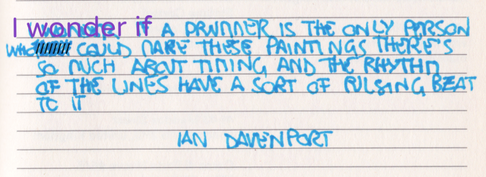 I wonder if A DRUMMER IS THE ONLY PERSON
WHO COULD MAKE THESE PAINTINGS THERE'S
SO MUCH ABOUT TIMING AND THE RHYTHM
OF THE LINES HAVE A SORT OF PULSING BEAT
TO IT
IAN DAVENPORT